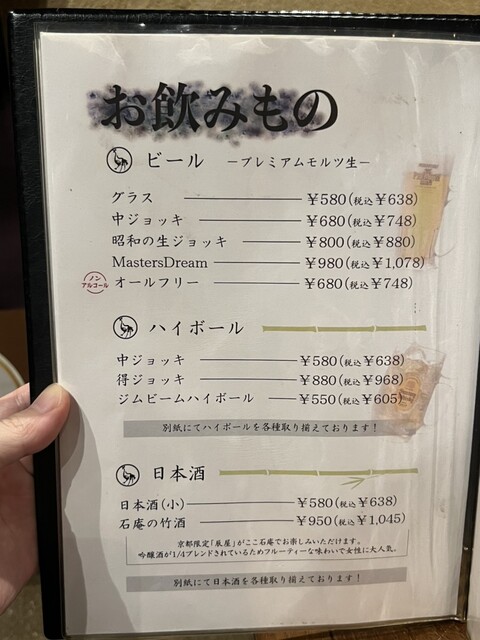 お飲みもの
ビール －プレミアムモルツ生－
グラス ￥580(税込￥638)
中ジョッキ ￥680(税込￥748)
昭和の生ジョッキ ￥800(税込￥880)
MastersDream ￥980(税込￥1,078)
ノンアルコール オールフリー ￥680(税込￥748)
ハイボール
中ジョッキ ￥580(税込￥638)
得ジョッキ ￥880(税込￥968)
ジムビームハイボール ￥550(税込￥605)
別紙にてハイボールを各種取り揃えております！
日本酒
日本酒(小) ￥580(税込￥638)
石庵の竹酒 ￥950(税込￥1,045)
京都限定「辰屋」がここ石庵でお楽しみいただけます。
吟醸酒が1/4ブレンドされているためフルーティーな味わいで女性に大人気。
別紙にて日本酒を各種取り揃えております！